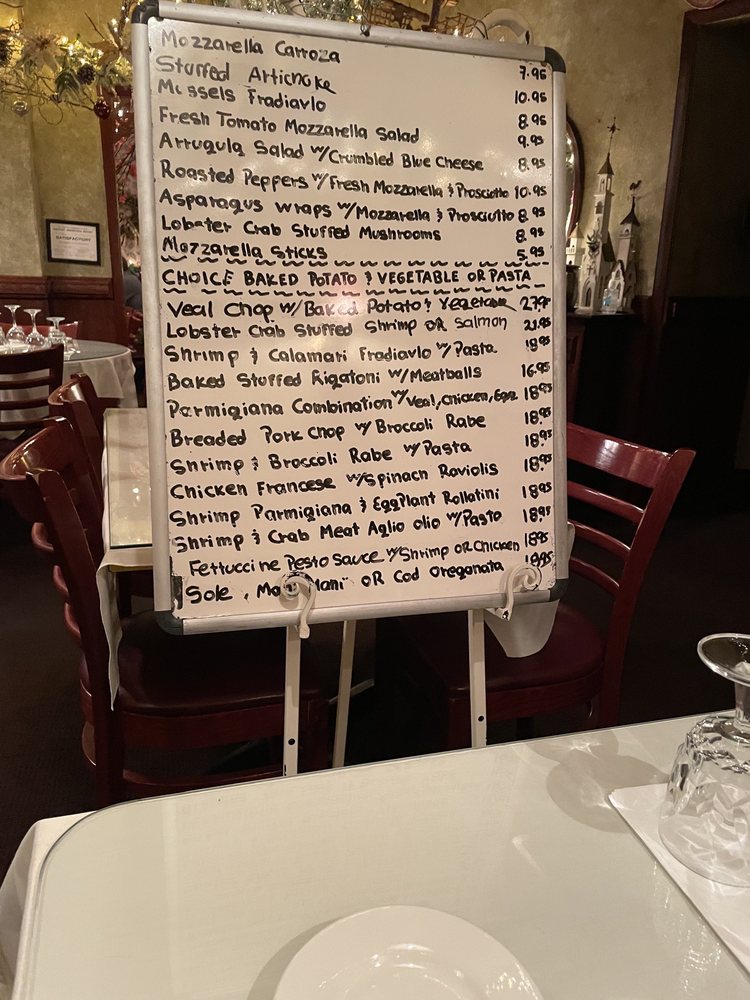 Mozzarella Carroza 7.95
Stuffed Artichoke 10.95
Mussels Fradiavlo 8.95
Fresh Tomato Mozzarella Salad 9.95
Arrugula Salad w/Crumbled Blue Cheese 8.95
Roasted Peppers w/Fresh Mozzarella & Prosciutto 10.95
Asparagus wraps w/Mozzarella & Prosciutto 8.95
Lobster Crab Stuffed Mushrooms 8.95
Mozzarella Sticks 5.95
CHOICE BAKED POTATO & VEGETABLE OR PASTA
Veal Chop w/Baked Potato & Vegetable 27.95
Lobster Crab Stuffed Shrimp OR Salmon 21.95
Shrimp & Calamari Fradiavlo w/Pasta 18.95
Baked Stuffed Rigatoni w/Meatballs 16.95
Parmigiana Combination w/Veal, Chicken, Egg. 18.95
Breaded Pork Chop w/ Broccoli Rabe 18.95
Shrimp & Broccoli Rabe w/ Pasta 18.95
Chicken Francese w/Spinach Raviolis 18.95
Shrimp Parmigiana & EggPlant Rollatini 18.95
Shrimp & Crab Meat Aglio olio w/Pasta 18.95
Fettuccine Pesto Sauce w/Shrimp OR Chicken 18.95
Sole, OR Cod Oreganata
SATISFACTORY